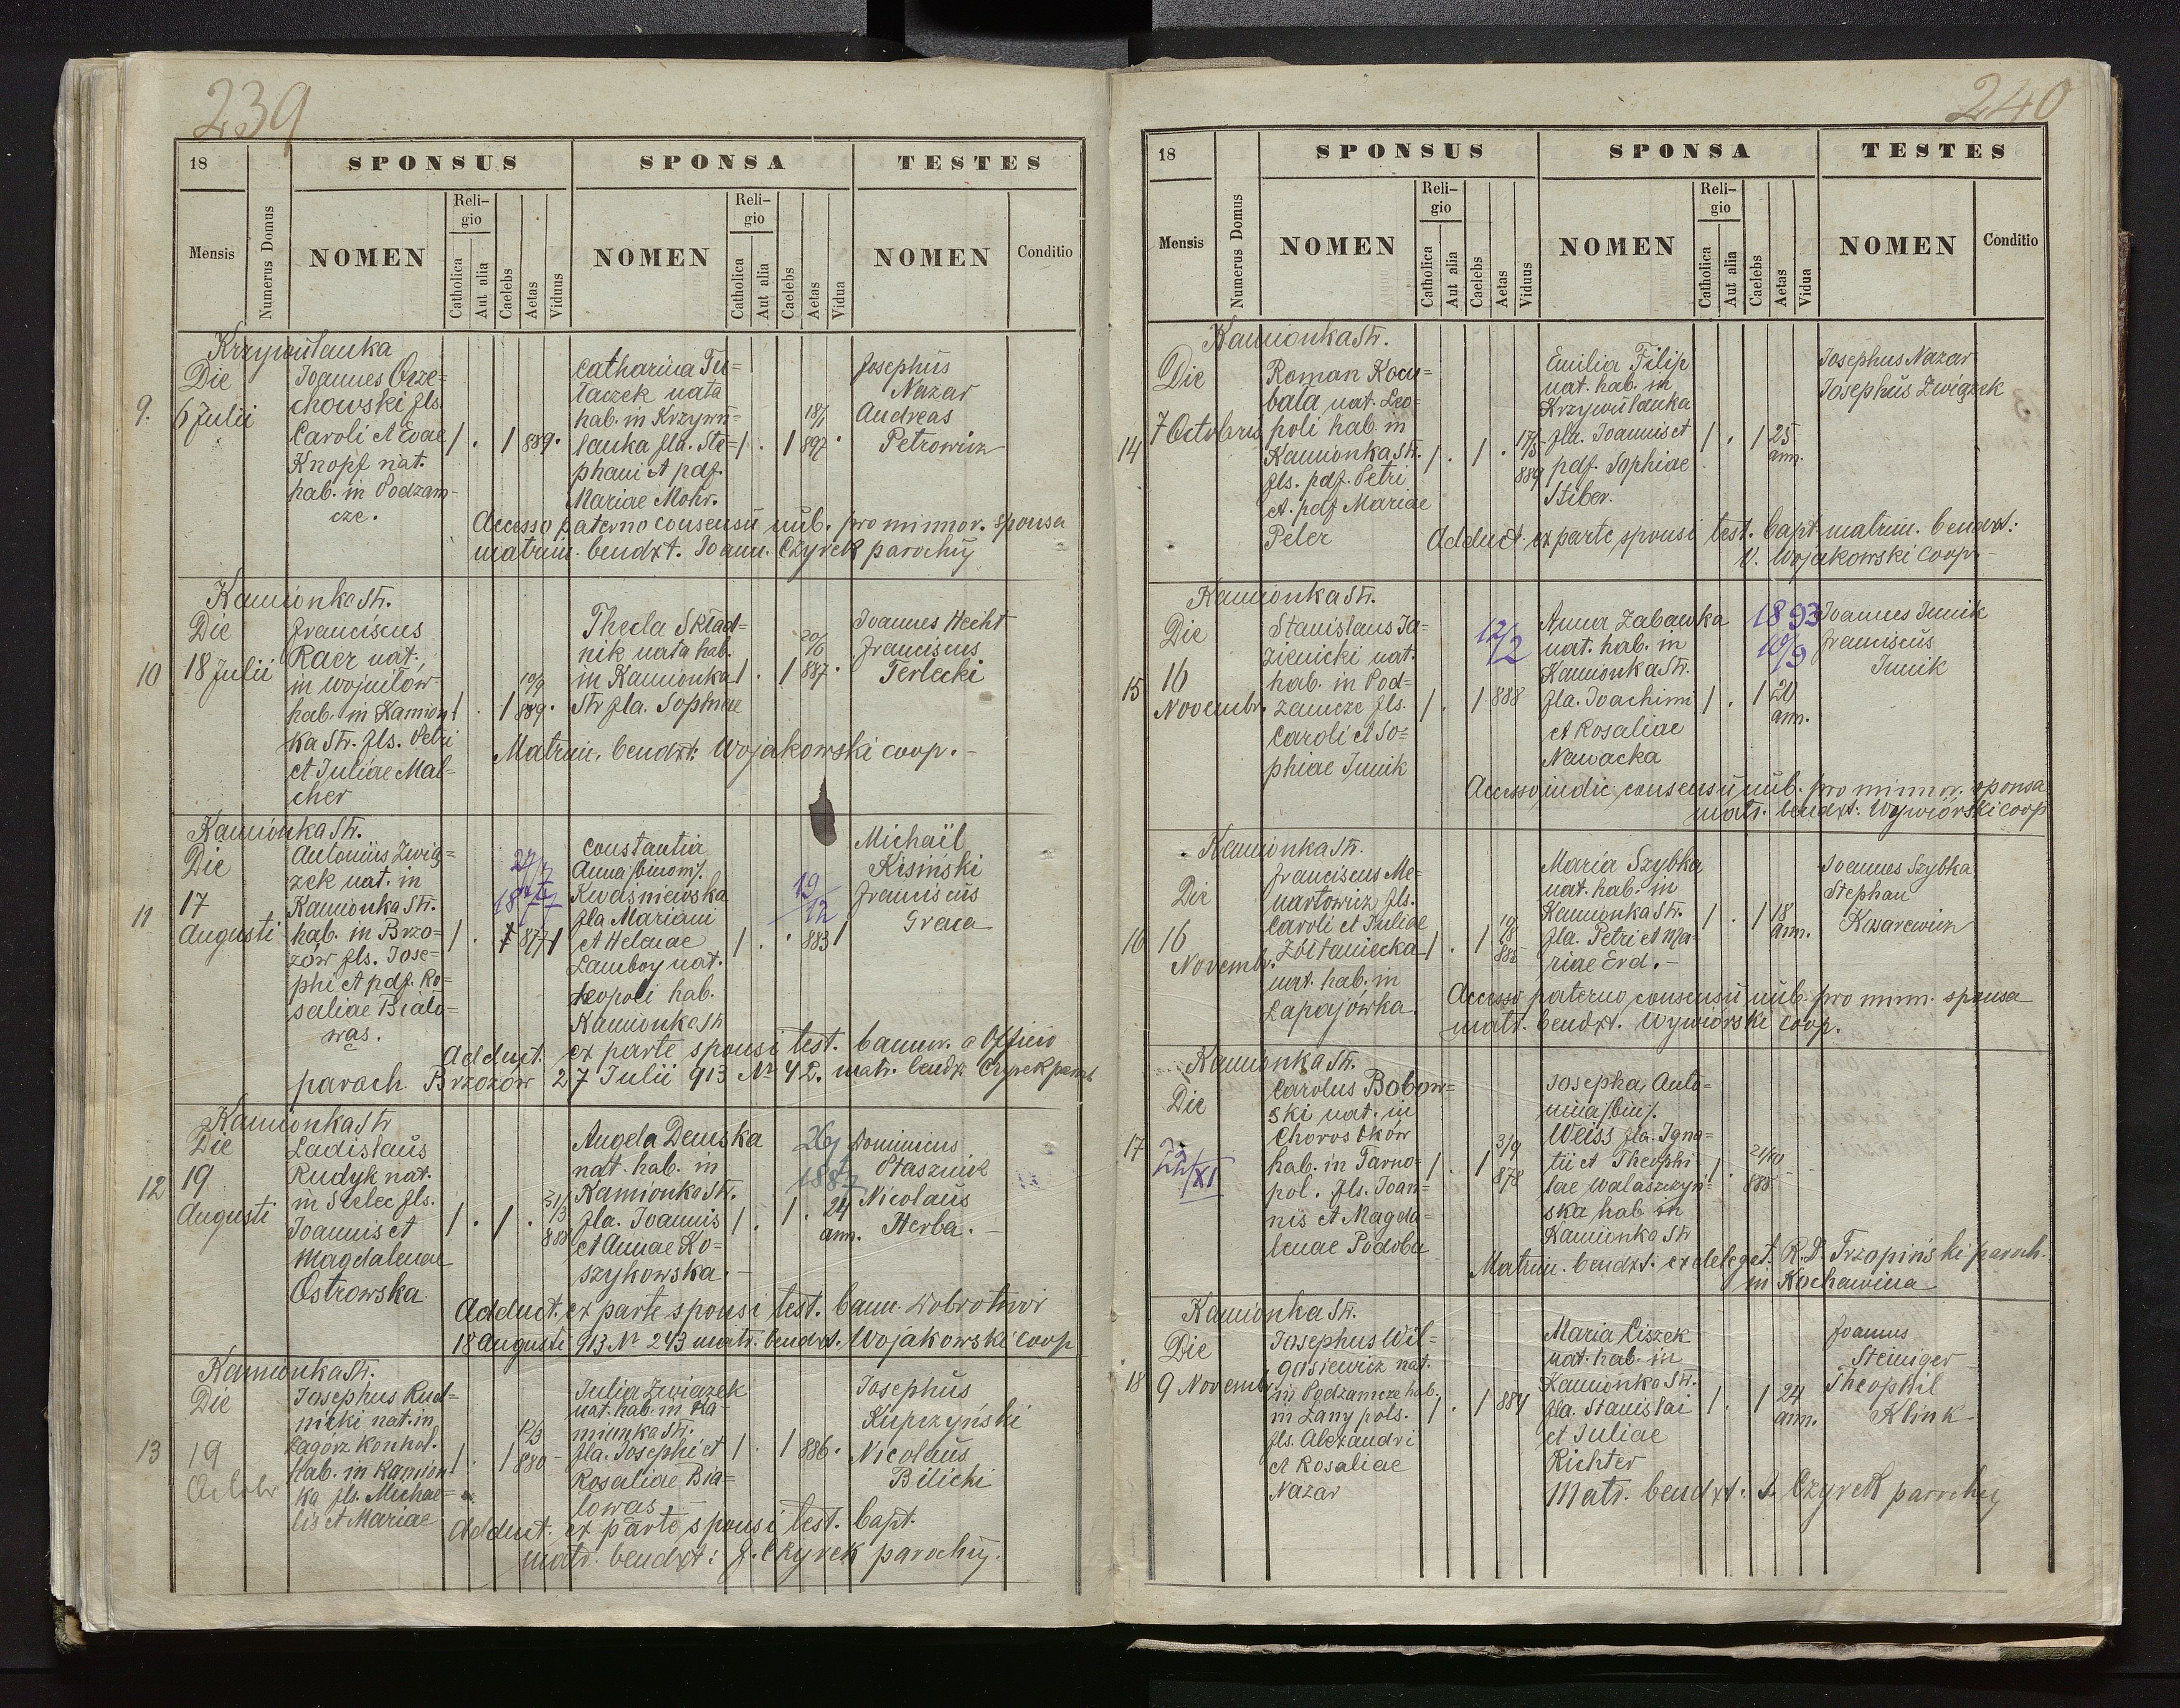 239
18
SPONSUS
SPONSA
TESTES
Mensis
Numerus Domus
NOMEN
Religio
Catholica
Aut alia
Caelebs
Aetas
Viduus
NOMEN
Religio
Catholica
Aut alia
Caelebs
Aetas
Vidua
NOMEN
Conditio
Krzywulanka
9.
Die
6 Julii
Joannes Orze=
chowski fls.
Caroli et Evae
Knopf nat.
hab. in Podzam-
cze.
1 . 1 889.
Catharina Tu=
taczek nata
hab. in Krzywu=
lanka fla. Ste=
phani et pdf.
Mariae Mohr.
1 . 1 18/1 897.
Josephus
Nazar
Andreas
Petrowicz
Accesso paterno consensu nub. pro minnor. sponsa
matrim. bendxt. Joann. Czyrek parochus
Kamionka Str.
10
Die
18 Julii
Franciscus
Racz nat.
in Wojnilow
hab. in Kamion
ka Str. fls. Petri
et Juliae Mal=
cher
1 . 1 889.
Thecla Sklad=
nik nata hab.
in Kamionka
Str fla. Sophiae
1 . 1 887.
Joannes Hecht
Franciscus
Terlecki
Matrim. bendxt: Wojakowski coop. -
Kamionka Str.
11
Die
17
Augusti
Antonius Zwią=
zek nat. in
Kamionka Str.
hab. in Brzo=
zów fls. Jose=
phi et pdf. Ro=
saliae Biało=
was.
1 . 877 1
Constantia
Anna /binom/.
Kwaśniewska
fla Mariani
et Helenae
Lamboy nat.
Leopoli hab.
Kamionka Str
19/12
1 . . 883 1
Michaïl
Kisiński
Franciscus
Greca
Adduct. ex parte sponsi test. bannor. a Officio
paroch Brzozów 27 Julii 913 Nr 42. matr. bendxt Czyrek paroch
Kamionka Str
12
Die
19
Augusti
Ladislaus
Rudyk nat.
in Sielec fls.
Joannis et
Magdalenae
Ostrowska.
1 . 1 . 31/3 888
Angela Demska
nat. hab. in
Kamionka Str.
fla. Joannis
et Annae Ko=
szykowska. -
1 . 1 . 24
ann.
Dominicus
Ptasznik
Nicolaus
Herba. -
Adduct. ex parte sponsi test. bann. Dobrotwór
18 Augusti 913 Nr 243 matr. bendxt. Wojakowski coop
Kamionka Str.
13
Die
19
Octobr
Josephus Rud=
nicki nat. in
Zagórz Konkol.
hab. in Kamion
ka fls. Michae=
lis et Mariae
1 . 1 12/3 880
Julia Związek
nat. hab. in Ka=
mionka Str.
fla. Josephi et
Rosaliae Bia=
lowas. -
1 . 1 886.
Josephus
Kupczyński
Nicolaus
Bilicki
Adduct. ex parte sponsi test. bapt.
matr. bendxt: J. Czyrek parochus.
240
18
SPONSUS
SPONSA
TESTES
Mensis
Numerus Domus
NOMEN
Religio
Catholica
Aut alia
Caelebs
Aetas
Viduus
NOMEN
Religio
Catholica
Aut alia
Caelebs
Aetas
Vidua
NOMEN
Conditio
Kamionka Str.
14
Die
7 Octobris
Roman Kocu=
bala nat. Leo=
poli hab. in
Kamionka Str.
fls. pdf. Petri
et. pdf Mariae
Peler
1 . 1 . 889
Emilia Filip
nat. hab. in
Krzywulanka
fla. Joannis et
pdf. Sophiae
Stiber.
1 . 1 25
ann.
Josephus Nazar
Josephus Związek
Adduct. ex parte sponsi test. bapt. matrim. bendxt:
V. Wojakowski coop. -
Kamionka Str.
15
Die
16
Novembr.
Stanislaus Ja=
zienicki nat.
hab. in Pod=
zamcze fls.
Caroli et So=
phiae Junik
12/2
1 . 1 888
Anna Zabawka
nat. hab. in
Kamionka Str.
fla. Joachimi
et Rosaliae
Nawacka
1893
10/9
1 . 1 20
ann.
Joannes Junik
Franciscus
Junik
Accesso judic. consensu nub. pro minnor. sponsa
matr. bendxt: Wywiórski coop
Kamionka Str.
16
Die
16
Novembr.
Franciscus Me=
nartowicz fls.
Caroli et Juliae
Żółtaniecka
nat. hab. in
Łapajówka.
1 . 1 19/8 888
Maria Szybka
nat. hab. in
Kamionka Str.
fla. Petri et Ma=
riae Erd. -
1 . 1 18
ann.
Joannes Szybka
Stephan
Kasarewicz
Accesso paterno consensu nub. pro minn. sponsa
matr. bendxt. Wywiórski coop.
Kamionka Str.
17
Die
22/XI
Carolus Bobow=
ski nat. in
Chorostków
hab. in Tarno=
pol. fls. Joan=
nis et Magda=
lenae Podoba
1 . 1 3/9 878
Josepha Anto=
nina /bin/.
Weiss fla. Igna=
tii et Theophi=
lae Walaszczyń=
ska hab in
Kamionka Str
1 . 888
Matrim. bendxt: ex deleget. R. D. Trzopiński paroch.
in Kochawina
Kamionka Str.
18
Die
9 Novembr
Josephus Wil=
gusiewicz nat.
in Podzamcze hab.
in Łany pols.
fls. Alexandri
et Rosaliae
Nazar
1 . 1 884
Maria Ciszek
nat. hab. in
Kamionka Str.
fla. Stanislai
et Juliae
Richter
1 . 1 24
ann.
Joannes
Steiniger
Theophil
Klink
Matr. bendxt. J. Czyrek parochus